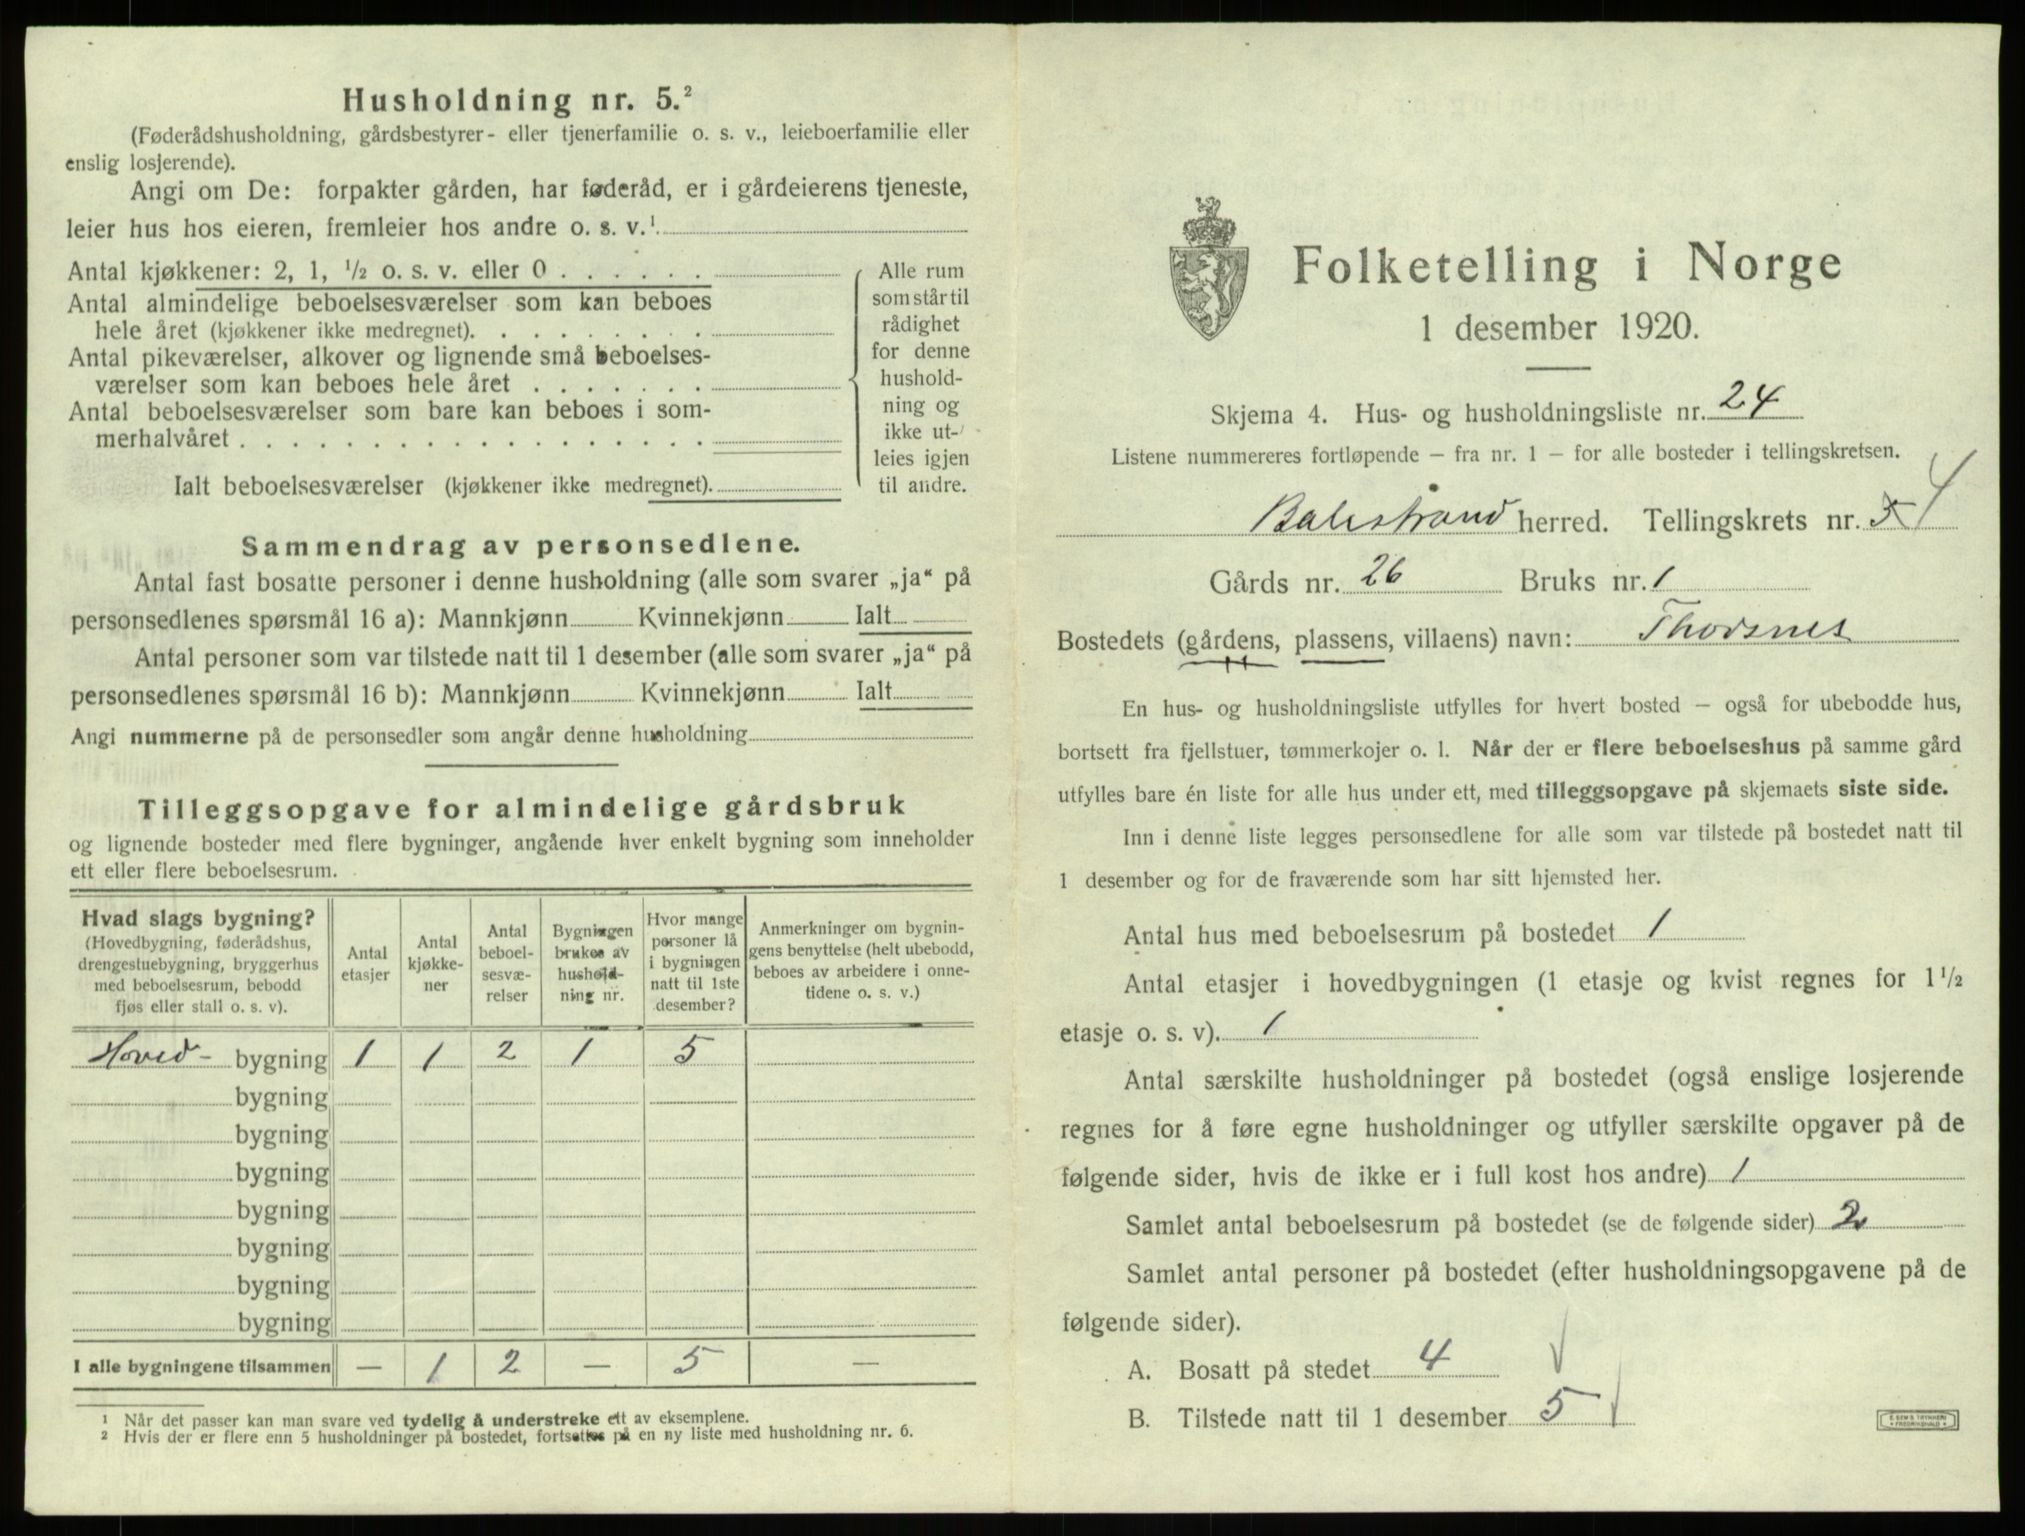 Husholdning nr. 5.²
(Føderådshusholdning, gårdsbestyrer- eller tjenerfamilie o. s. v., leieboerfamilie eller
enslig losjerende).
Angi om De: forpakter gården, har føderåd, er i gårdeierens tjeneste,
leier hus hos eieren, fremleier hos andre o. s. v.¹
Antal kjøkkener: 2, 1, ½ o. s. v. eller 0 . . . . . .
Antal almindelige beboelsesværelser som kan beboes
hele året (kjøkkener ikke medregnet). . . . . . . .
Antal pikeværelser, alkover og lignende små beboelses-
værelser som kan beboes hele året . . . . . . .
Antal beboelsesværelser som bare kan beboes i som-
merhalvåret . . . . . . . . . . . . . . . . .
Ialt beboelsesværelser (kjøkkener ikke medregnet).
Alle rum
som står til
rådighet
for denne
hushold-
ning og
ikke ut-
leies igjen
til andre.
Sammendrag av personsedlene.
Antal fast bosatte personer i denne husholdning (alle som svarer „ja“ på
personsedlenes spørsmål 16 a): Mannkjønn Kvinnekjønn Ialt
Antal personer som var tilstede natt til 1 desember (alle som svarer „ja“ på
personsedlenes spørsmål 16 b): Mannkjønn Kvinnekjønn Ialt
Angi nummerne på de personsedler som angår denne husholdning
Tilleggsopgave for almindelige gårdsbruk
og lignende bosteder med flere bygninger, angående hver enkelt bygning som inneholder
ett eller flere beboelsesrum.
Hvad slags bygning?
(Hovedbygning, føderådshus,
drengestuebygning, bryggerhus
med beboelsesrum, bebodd
fjøs eller stall o. s. v).
Antal
etasjer
Antal
kjøkke-
ner
Antal
beboel-
sesvæ-
relser
Bygningen
brukes av
hushold-
ning nr.
Hvor mange
personer lå
i bygningen
natt til 1ste
desember?
Anmerkninger om bygnin-
gens benyttelse (helt ubebodd,
beboes av arbeidere i onne-
tidene o. s. v.)
Hoved- bygning 1 1 2 1 5
bygning
bygning
bygning
bygning
bygning
bygning
bygning
I alle bygningene tilsammen — 1 2 — 5 —
¹ Når det passer kan man svare ved tydelig å understreke ett av eksemplene.
² Hvis der er flere enn 5 husholdninger på bostedet, fortsettes på en ny liste med husholdning nr. 6.
Folketelling i Norge
1 desember 1920.
Skjema 4. Hus- og husholdningsliste nr. 24
Listene nummereres fortløpende — fra nr. 1 — for alle bosteder i tellingskretsen.
Balestrand herred. Tellingskrets nr. 5 4
Gårds nr. 26 Bruks nr. 1
Bostedets (gårdens, plassens, villaens) navn: Thorsnes
En hus- og husholdningsliste utfylles for hvert bosted — også for ubebodde hus,
bortsett fra fjellstuer, tømmerkojer o. l. Når der er flere beboelseshus på samme gård
utfylles bare én liste for alle hus under ett, med tilleggsopgave på skjemaets siste side.
Inn i denne liste legges personsedlene for alle som var tilstede på bostedet natt til
1 desember og for de fraværende som har sitt hjemsted her.
Antal hus med beboelsesrum på bostedet 1
Antal etasjer i hovedbygningen (1 etasje og kvist regnes for 1 ½
etasje o. s. v). 1
Antal særskilte husholdninger på bostedet (også enslige losjerende
regnes for å føre egne husholdninger og utfyller særskilte opgaver på de
følgende sider, hvis de ikke er i full kost hos andre) 1
Samlet antal beboelsesrum på bostedet (se de følgende sider) 2
Samlet antal personer på bostedet (efter husholdningsopgavene på de
følgende sider).
A. Bosatt på stedet 4
B. Tilstede natt til 1 desember 5